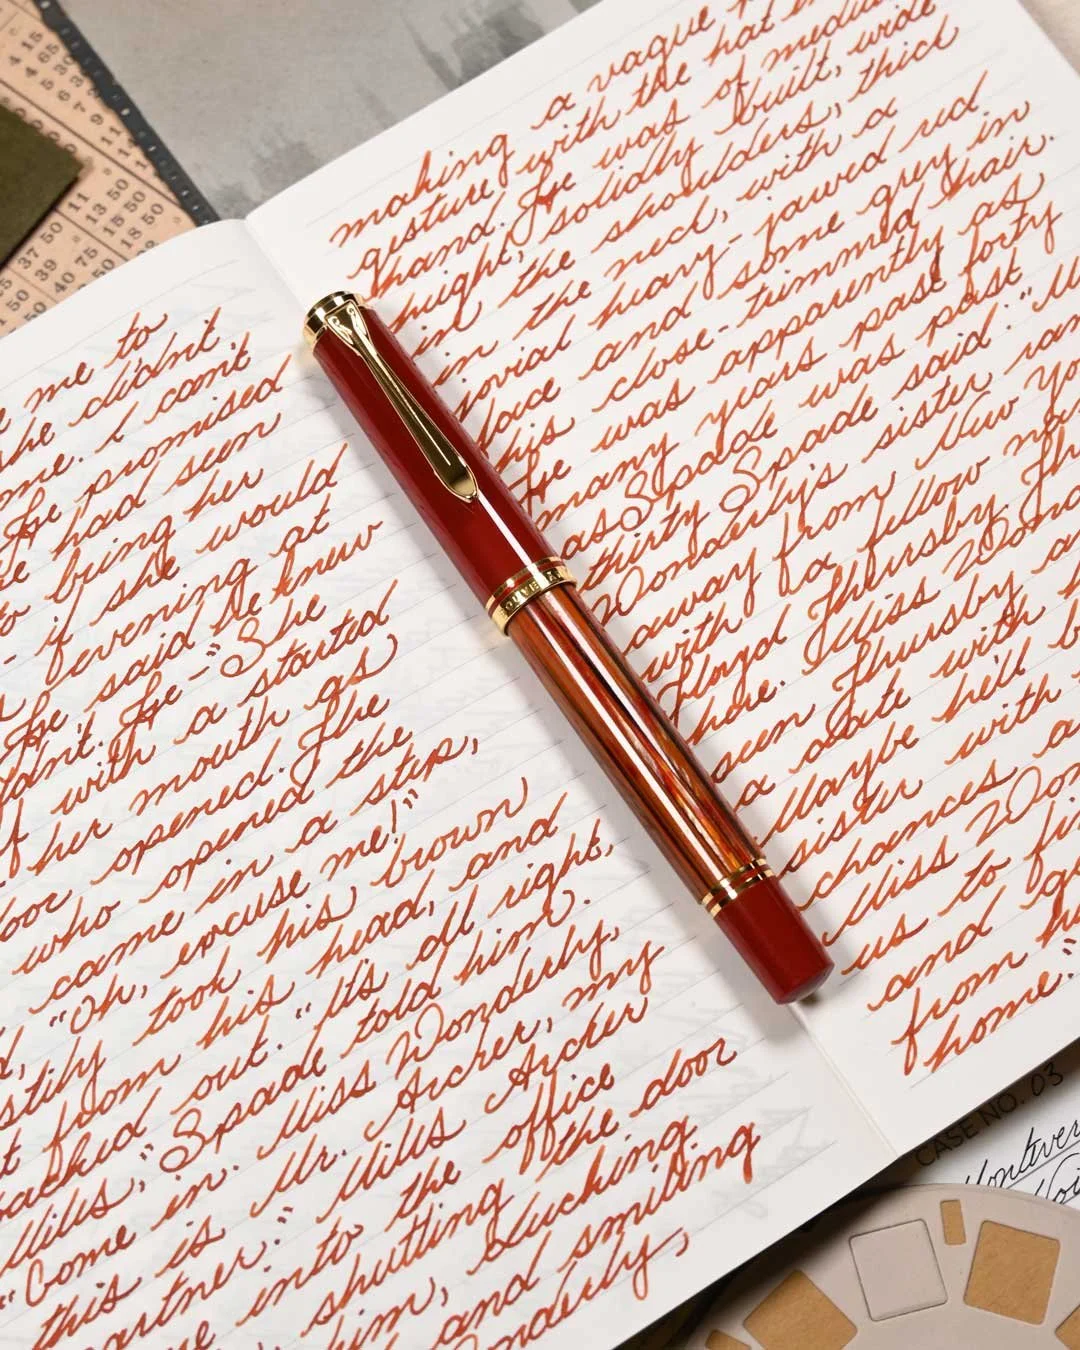 me to
she didn't,
me. I can't
He promised
he had seen
to bring her
- if she would
evening at
He said he knew
didn't. He-" She
with a started
her mouth as
door opened. The
who opened the
came in a step,
"Oh, excuse me!"
hastily took his brown
from his head, and
backed out. "It's all right,
Miles," Spade told him.
"Come in. Miss Wonderly,
this is Mr. Archer, my
partner." Miles Archer
into the office
shutting the door
him, ducking
and smiling
onderly,
making a vague
gesture with the hat in
hand. He was of medium
height, solidly built, wide
in the shoulders, thick
in the neck, with a
jovial heavy-jawed red
face and some grey in
his close-trimmed hair.
He was apparently as
many years past forty
as Spade was past
thirty. Spade said: "M
Wonderly's sister ran
away from New Yo
with a fellow nam
Floyd Thursby. The
here. Miss Wond
seen Thursby an
a date with h
Maybe he'll b
sister with
chances a
Miss Won
us to fin
and ge
from h
home."
CASE NO. 03